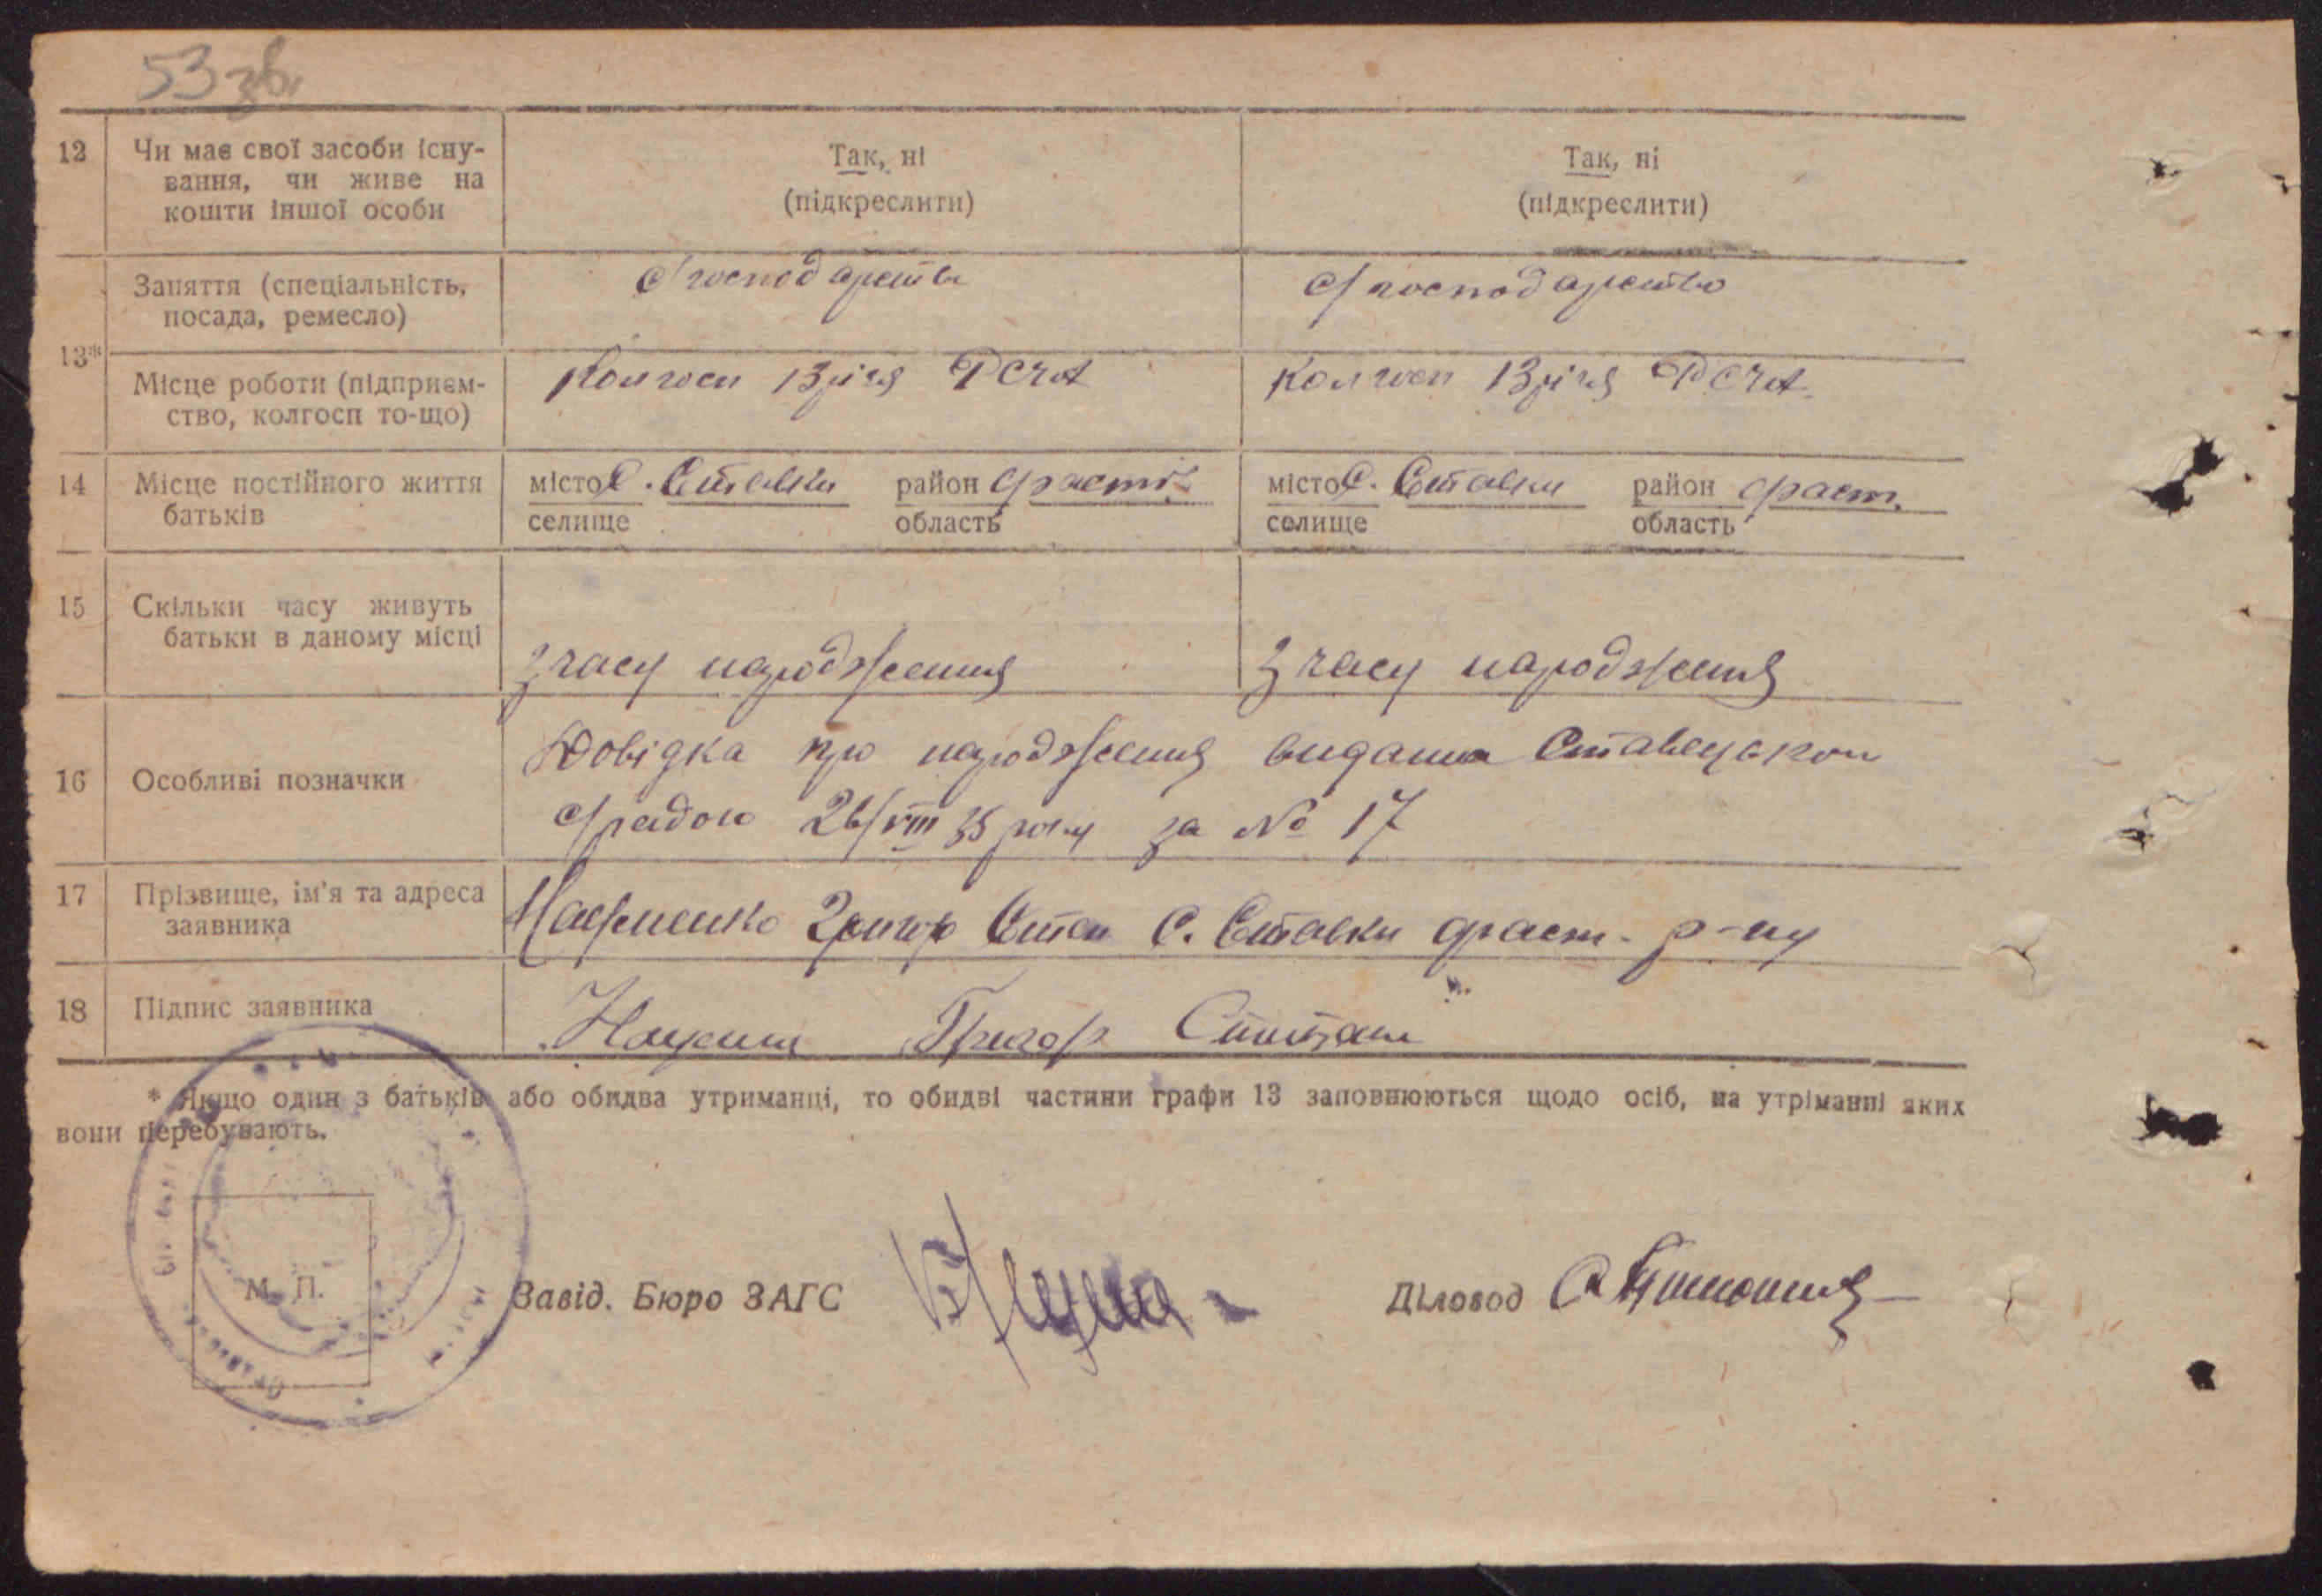 53 зв.
12 Чи має свої засоби існу- Так, ні Так, ні
вання, чи живе на (підкреслити) (підкреслити)
кошти іншої особи
Заняття (спеціальність, с/господарство с/господарство
посада, ремесло)
13*
Місце роботи (підприєм- Колгосп 13 річчя РСЧА Колгосп 13 річчя РСЧА.
ство, колгосп то-що)
14 Місце постійного життя місто С. Ставки район Фраст. місто С. Ставки район Фраст.
батьків селище область селище область
15 Скільки часу живуть
батьки в даному місці з часу народження з часу народження
Довідка про народження видана Ставецькою
16 Особливі позначки
с/радою 26/VIII 35 року за № 17
17 Прізвище, ім'я та адреса
заявника Григор Степ С. Ставки фраст. р-ну
18 Підпис заявника Григор
* Якщо один з батьків або обидва утриманці, то обидві частини графи 13 заповнюються щодо осіб, на утріманні яких
вони перебувають.
М. П.
Завід. Бюро ЗАГС Діловод